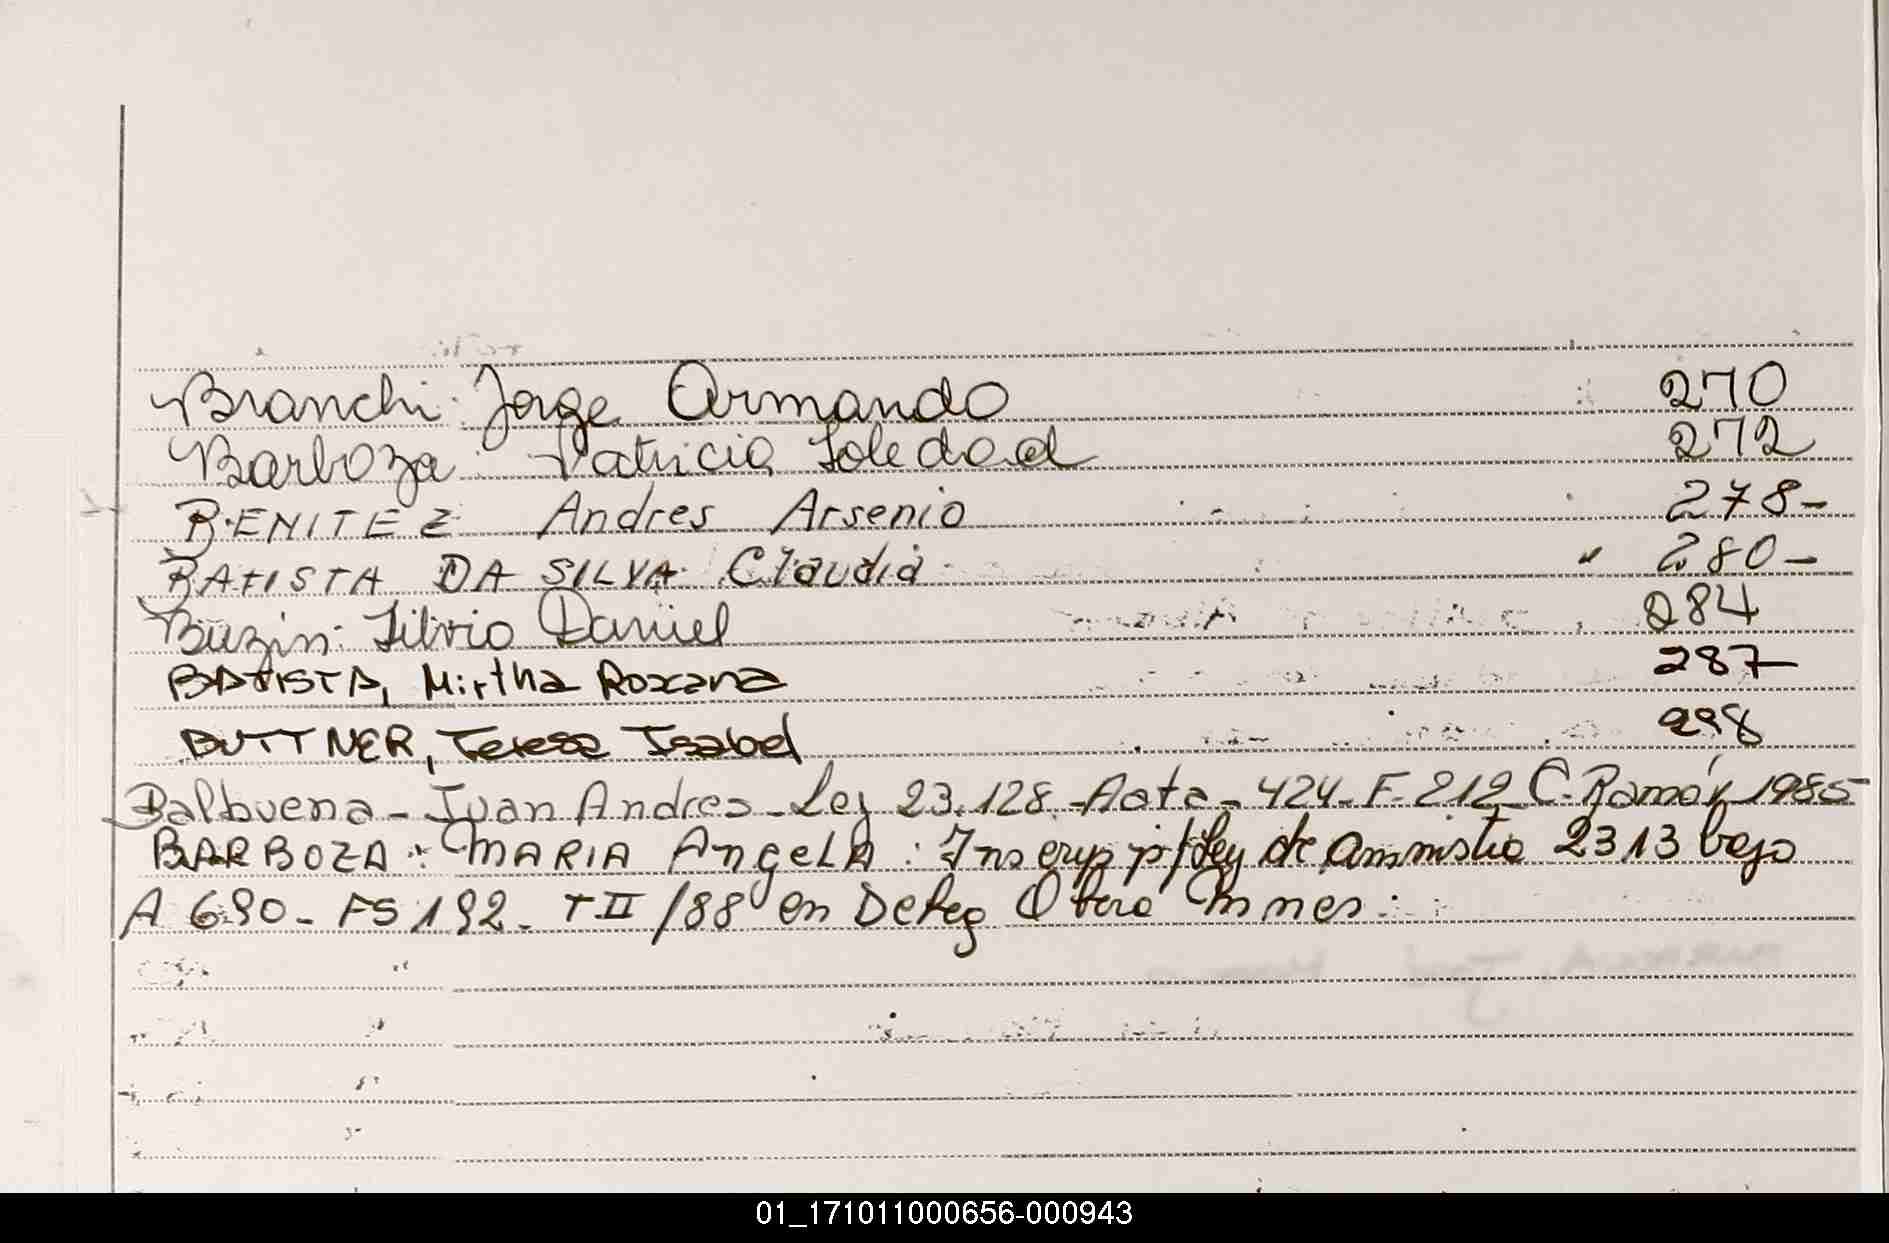 Bianchi: Jorge Armando 270
Barboza: Patricia Soledad 272
BENITEZ Andres Arsenio 278-
BATISTA DA SILVA Claudia " 280-
Buzin: Silvio Daniel 284
BATISTA, Mirtha Roxana 287
BUTTNER, Teresa Isabel 298
Balbuena - Juan Andres - Ley 23.128 - Acta - 424 - F. 212 C. Ramón 1985
BARBOZA: MARIA AngeLA: Inscrip p/ Ley de amnistia 2313 bajo
A 690 - FS 192 - T II /88 en Deleg Obera Mnes:
01_171011000656-000943